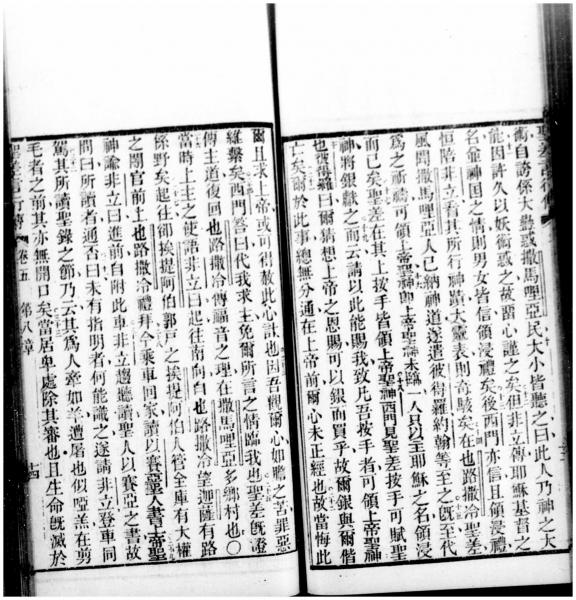 衝自誇係大蠱惑撒馬哩亞民大小皆聽之曰此人乃神之大
能因許久以妖術惑之故留心謹之矣但非立傳耶穌基督之
名並神國之情則男女皆信領浸禮矣後西門亦信且領浸禮
恒陪非立看其所行神蹟大靈表則奇駭矣在也路撒冷聖差
風聞撒馬哩亞人已納神道遂遣彼得羅約翰等至之旣至代
爲之所禱可領上帝聖神卽上帝聖神未臨一人只以主耶穌之名領浸
而已矣聖差在其上按手皆領上帝聖神西門見聖差按手可賦聖
神將銀獻之而云請以此能賜我致凡吾按手者可領上帝聖神
也彼得羅曰爾猜想上帝之恩賜可以銀而買乎故爾銀與爾偕
亡矣爾於此事總無分通在上帝前爾心未正經也故當悔此
爾且求上帝或可得赦此心計也因吾觀爾心如膽之苦罪惡
維繫矣西門答曰代我求主免爾所言之情臨我也聖差旣證
傳主道後回也路撒冷傳福音之理在撒馬哩亞多鄉村也〇
當時上主之使語非立曰起往南向自也路撒冷望迦薩有路
係野矣起往卻挨提阿伯郭戸之挨提阿伯人管全庫有大權
之閹官前上也路撒冷禮拜今乘車回家讀以賽亞人書上帝聖
神諭非立曰進前自附此車非立趨聽讀聖人以賽亞之書故
問曰所讀者通否曰未有指明者何能識之遂請非立登車同
駕其所讀聖錄之節乃云其爲人牽如羊遭屠也似啞羔在剪
毛者之前其亦無開口矣當居卑處除其審也且生命旣滅於
卷五 第八章 十四